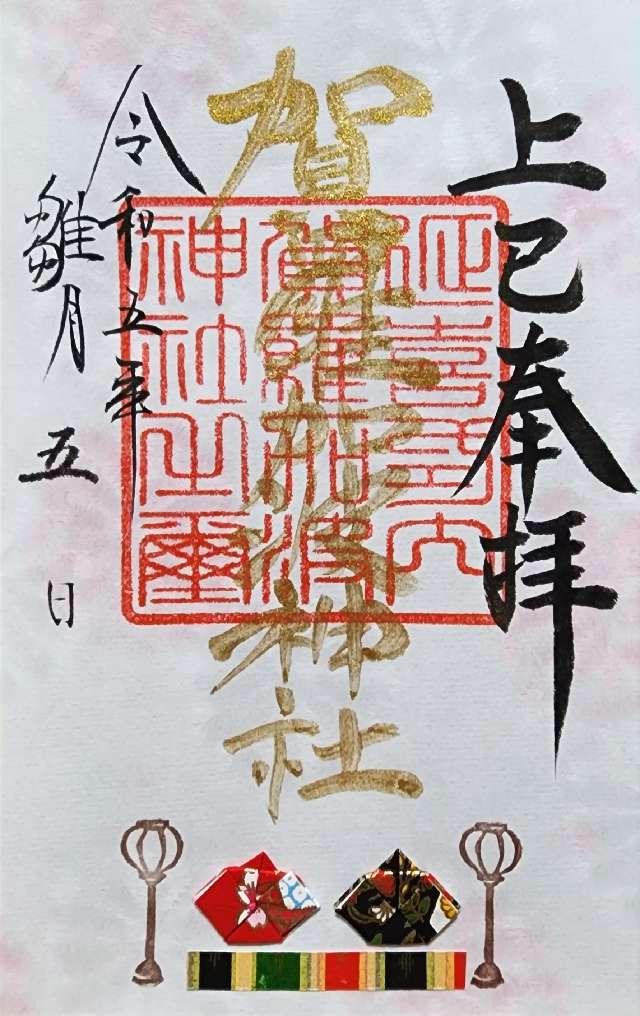 上巳奉拝
賀羅加波神社
延喜式内
賀羅加波
神社之璽
令和五年
雛月五日